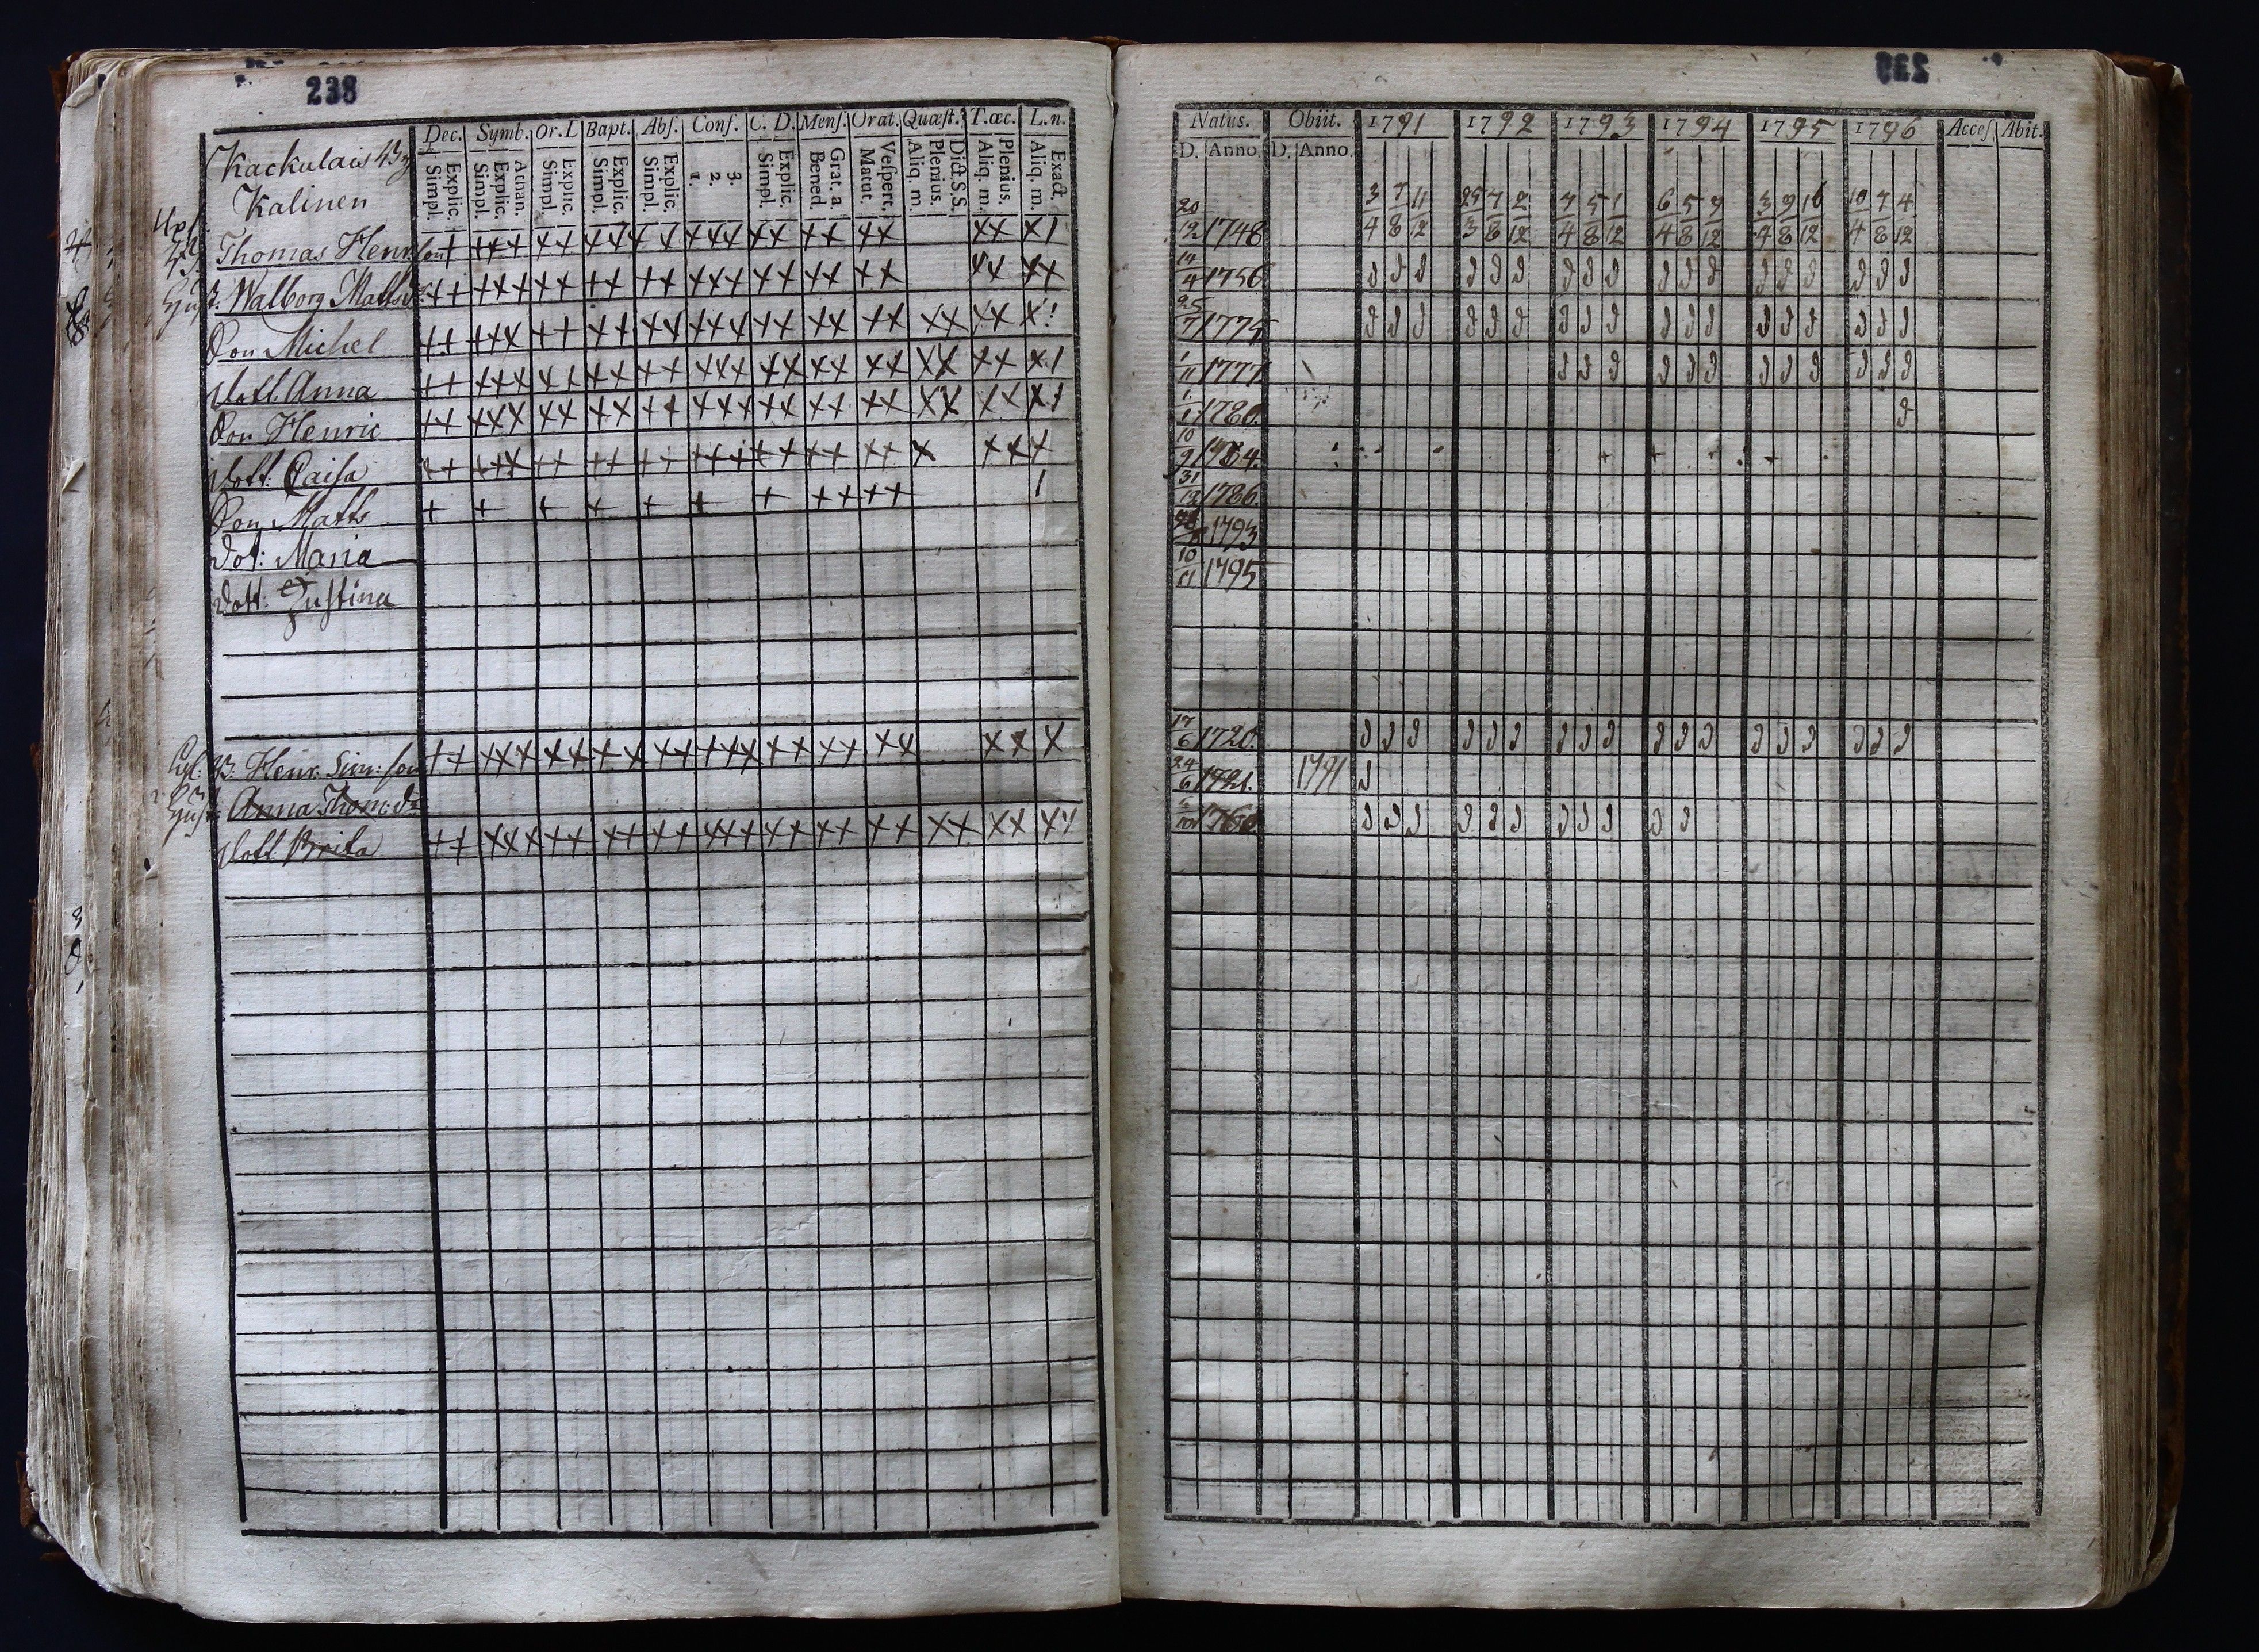 238
Dec. Symb. Or. L Bapt. Abſ. Conf. C. D. Menſ. Orat. Quæſt. T.œc. L.n.
Kackulais 43
Kalinen
Explic. Simpl. Athan. Explic. Simpl. Explic. Simpl. Explic. Simpl. Explic. Simpl. 3. 2. 1. Explic. Simpl. Grat. a. Bened. Veſpert. Matut. Dict. S.S. Plenius. Aliq. m. Plenius. Aliq. m. Exact. Aliq. m.
Thomas Henr. son
Hust. Walborg Matts dr
Son Michel
Dott. Anna
Son Henric
Dott: Caisa
Son Matts
Dot: Maria
Dott: Justina
B. Henr. Sim: son
Hust: Anna Thom: dr
Dott. Brita
239
Natus. Obiit. 1791 1792 1793 1794 1795 1796 Acceſ. Abit.
D. Anno D. Anno.
3 7 11 25 7 2 7 5 1 6 5 7 3 9 16 10 7 4
4 8 12 3 8 12 4 8 12 4 8 12 4 8 12 4 8 12
20/12 1748
14/4 1756
25/7 1775
1/11 1777
1/1 1780.
10/9 1784.
31/12 1786.
1793
10/11 1795
17/6 1720.
24/6 1721. 1791
1760